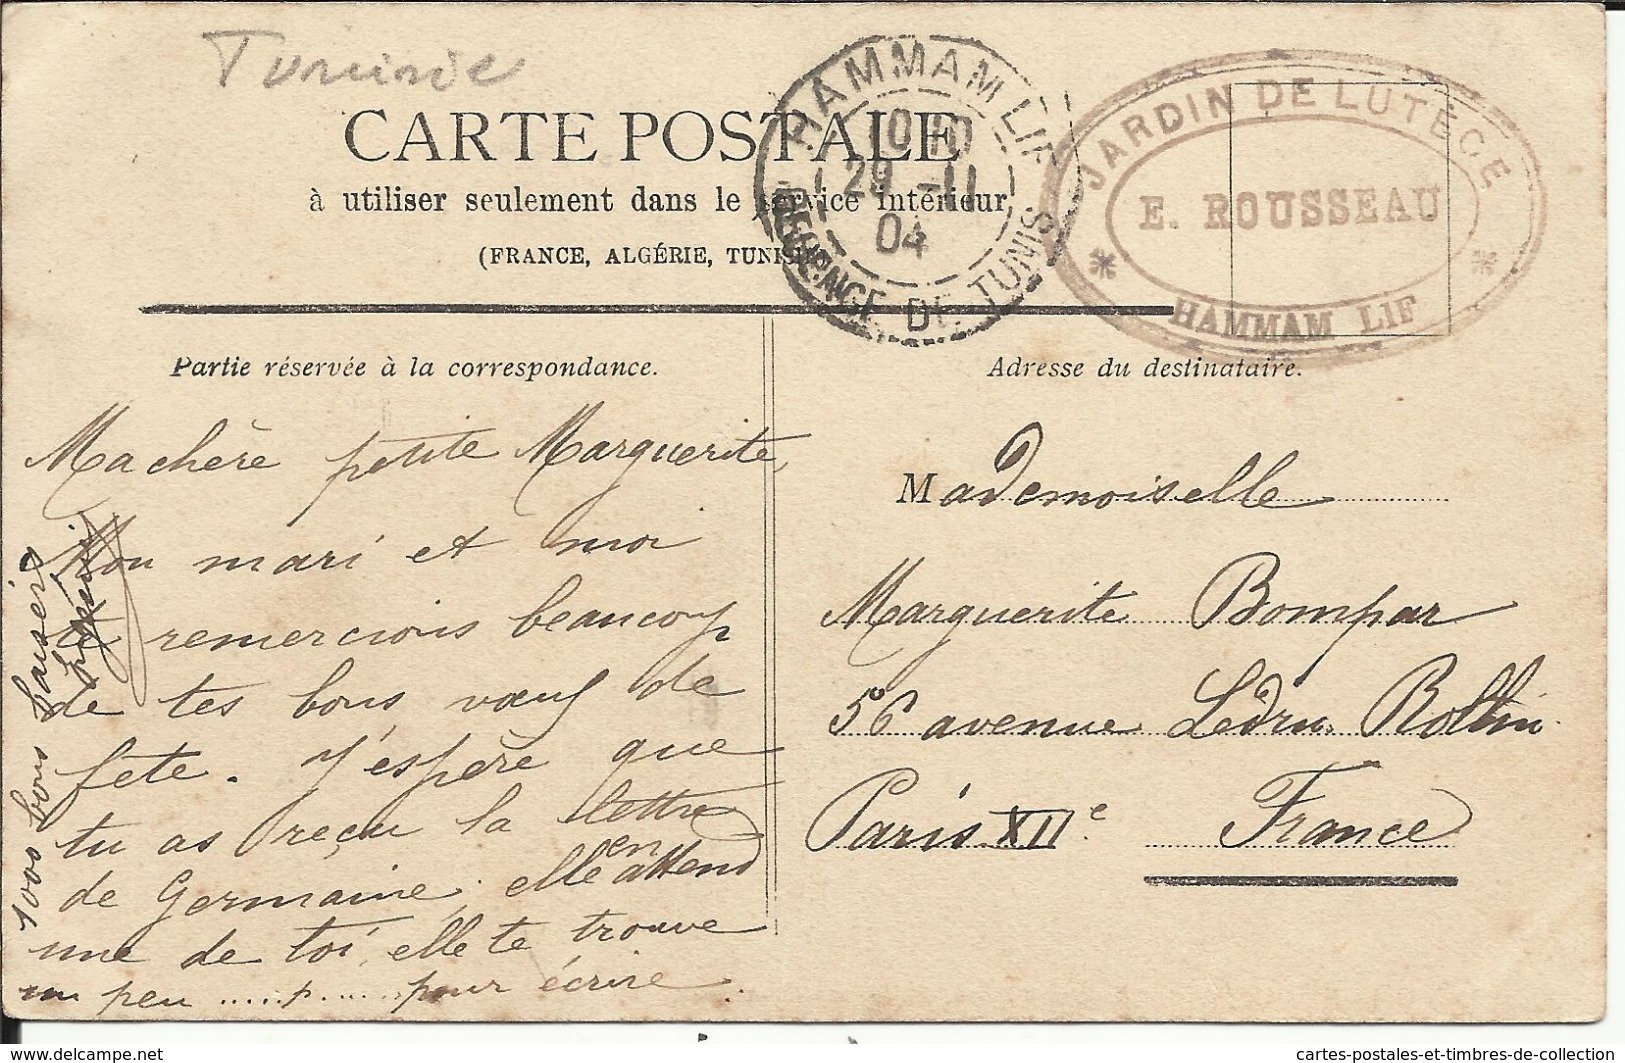 Tunisie
CARTE POSTALE
à utiliser seulement dans le service intérieur
(FRANCE, ALGÉRIE, TUNISIE)
HAMMAM LIF
10 10
29 -11
04
RÉGENCE DE TUNIS
JARDIN DE LUTÈCE
E. ROUSSEAU
HAMMAM LIF
Partie réservée à la correspondance.
Adresse du destinataire.
Ma chère petite Marguerite,
Mon mari et moi
te remercions beaucoup
de tes bons vœux de
fête. J'espère que
tu as reçu la lettre
de Germaine, elle en attend
une de toi, elle te trouve
un peu ..... p ..... pour écrire.
1000 bons baisers
Mademoiselle
Marguerite Bompar
56 avenue Ledru. Rollin.
Paris XIIe.
France
www.delcampe.net
cartes-postales-et-timbres-de-collection